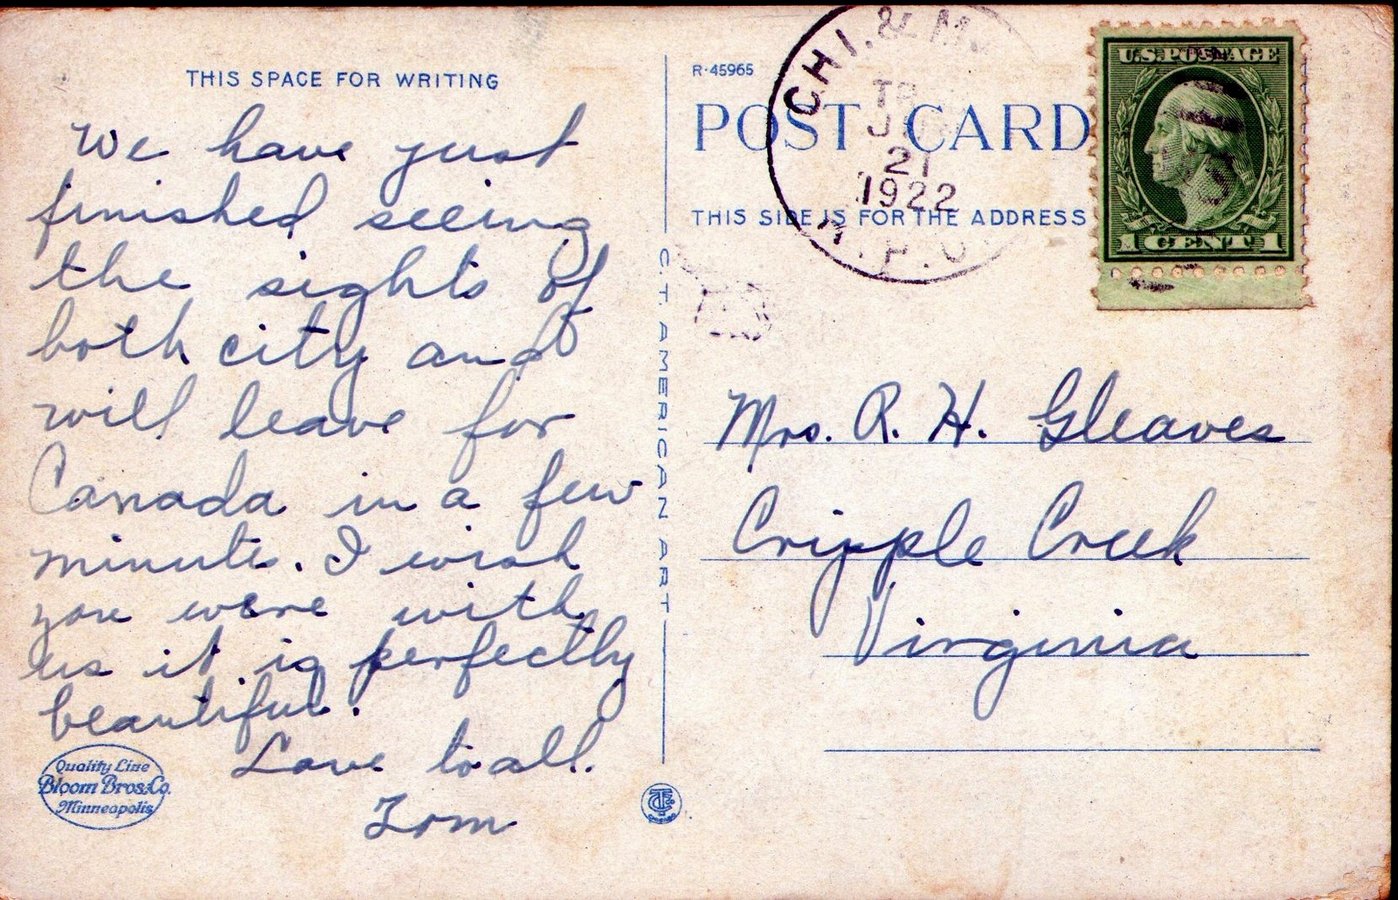 THIS SPACE FOR WRITING
We have just
finished seeing
the sights of
both city and
will leave for
Canada in a few
minutes. I wish
you were with
us it is perfectly
beautiful.
Love to all.
Tom
Quality Line
Bloom Bros. Co.
Minneapolis
C.T. AMERICAN ART
R-45965
POST CARD
THIS SIDE IS FOR THE ADDRESS
CHI. & M
TR
21
1922
R.P.O.
U.S. POSTAGE
1 CENT 1
Mrs. R. H. Gleaves
Cripple Creek
Virginia